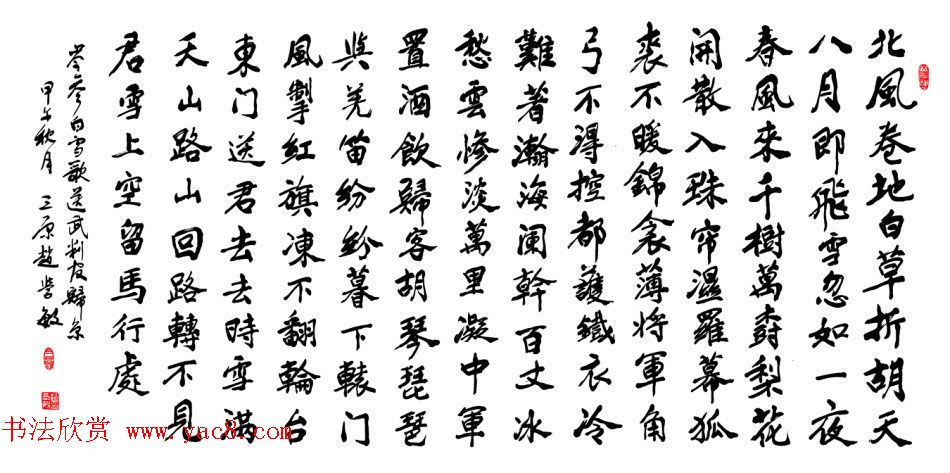 北風卷地白草折胡天
八月即飛雪忽如一夜
春風來千樹萬樹梨花
開散入珠帘濕羅幕狐
裘不暖錦衾薄將軍角
弓不得控都護鐵衣冷
難著瀚海闌幹百丈冰
愁雲慘淡萬里凝中軍
置酒飲歸客胡琴琵琶
與羌笛紛紛暮下轅门
風掣紅旗凍不翻輪台
東门送君去去時雪满
天山路山回路轉不見
君雪上空留馬行處
岑參白雪歌送武判官歸京
甲午秋月 三原趙學敏
书法欣赏 www.yac8.com